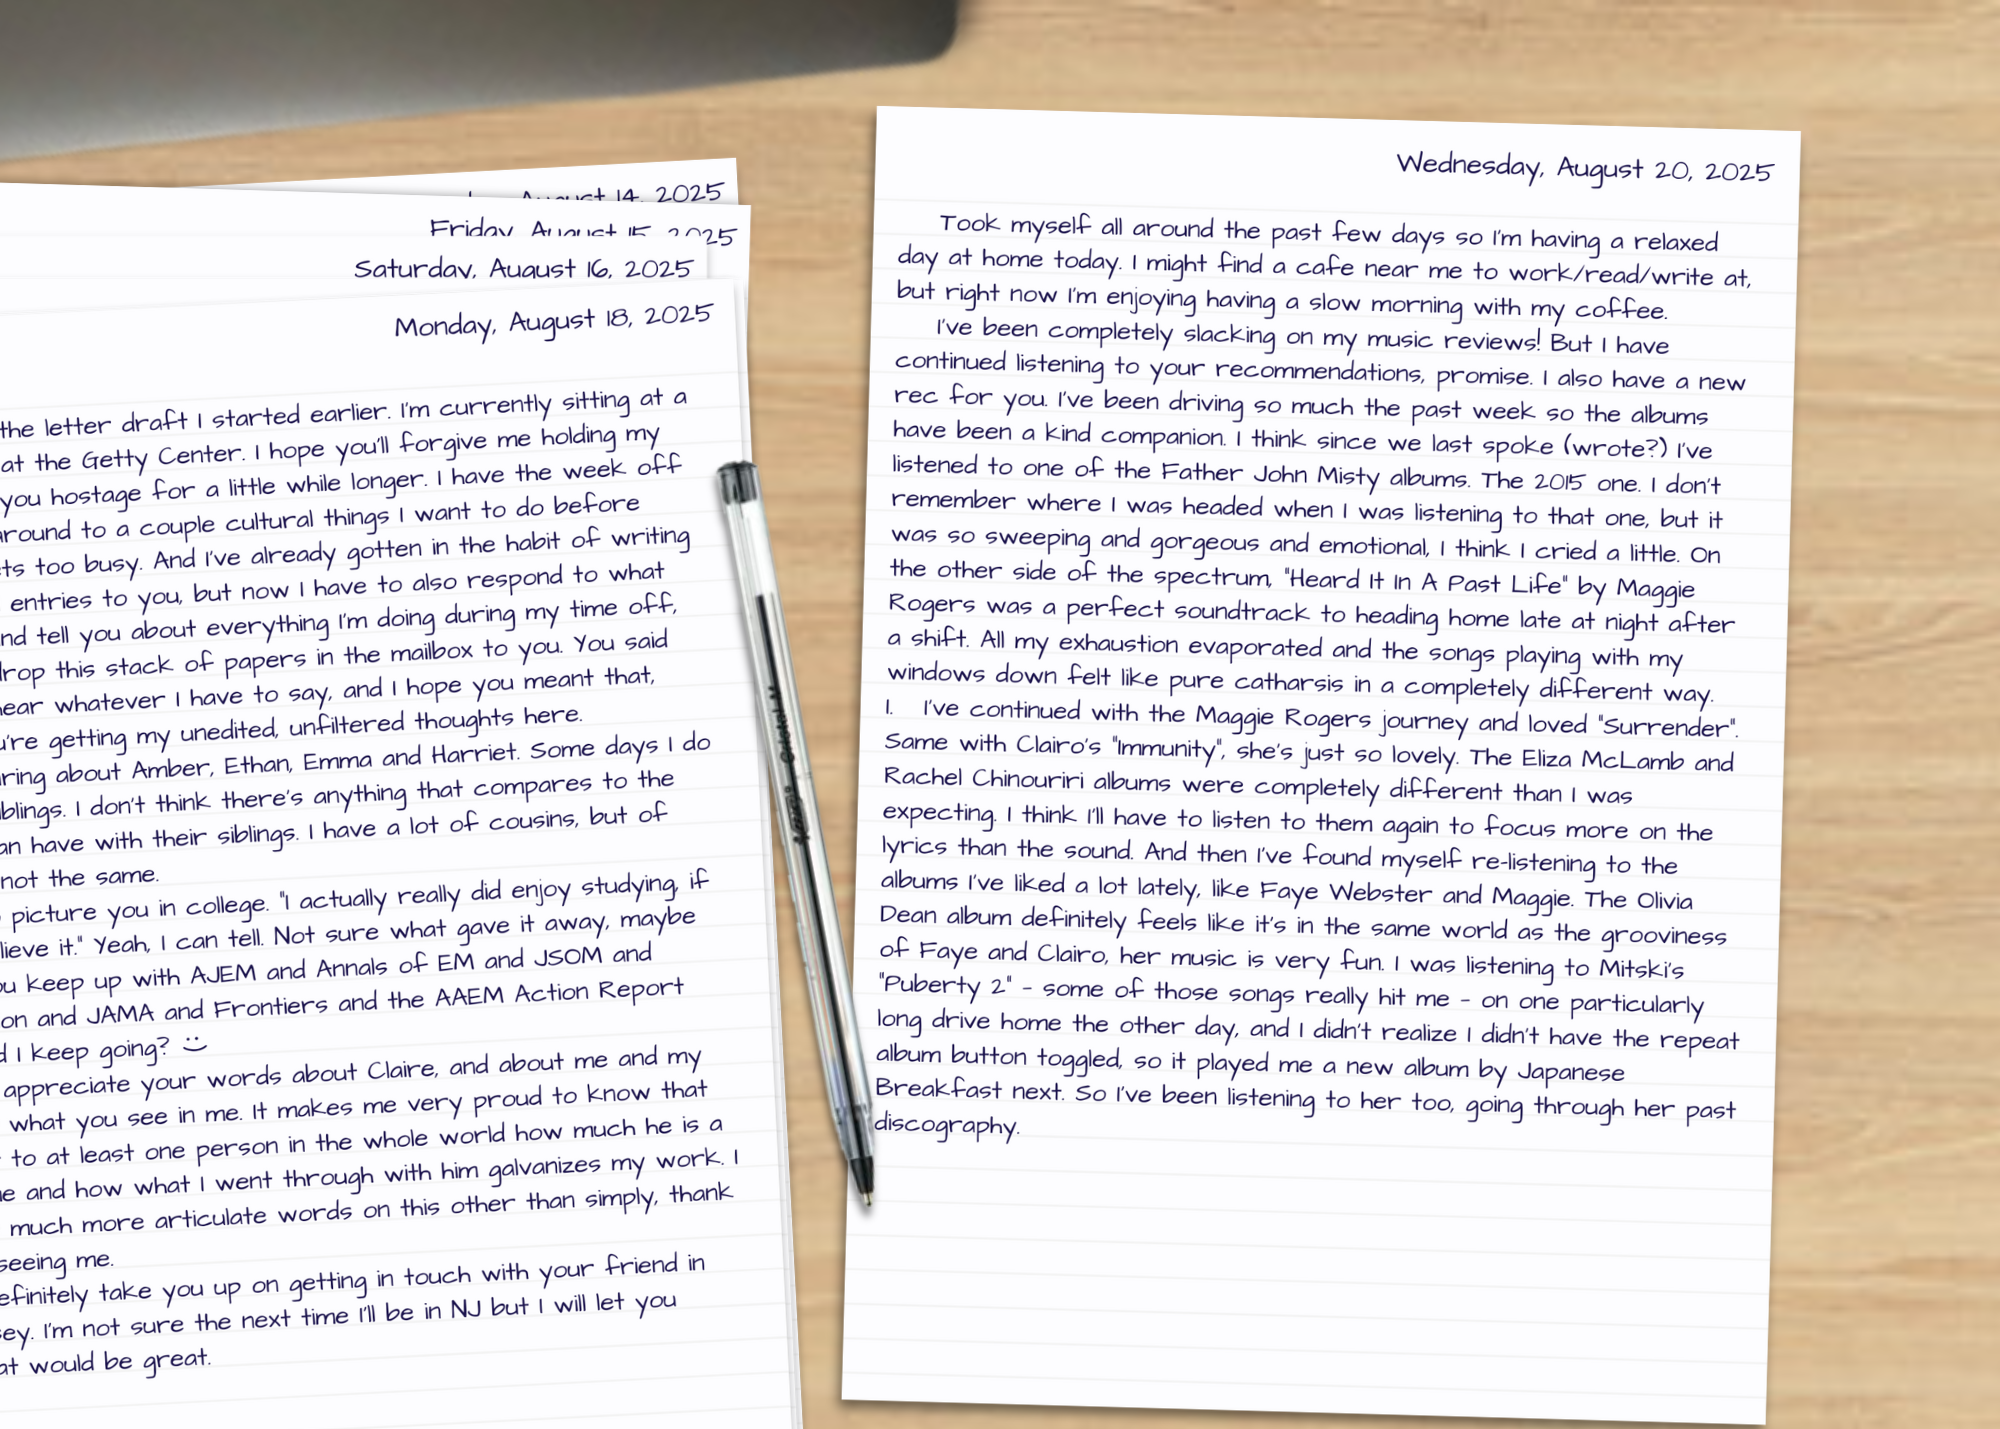 August 14, 2025
Friday, August 15, 2025
Saturday, August 16, 2025
Monday, August 18, 2025
the letter draft I started earlier. I'm currently sitting at a
at the Getty Center. I hope you'll forgive me holding my
you hostage for a little while longer. I have the week off
around to a couple cultural things I want to do before
ts too busy. And I've already gotten in the habit of writing
entries to you, but now I have to also respond to what
nd tell you about everything I'm doing during my time off,
drop this stack of papers in the mailbox to you. You said
ear whatever I have to say, and I hope you meant that,
u're getting my unedited, unfiltered thoughts here.
ring about Amber, Ethan, Emma and Harriet. Some days I do
blings. I don't think there's anything that compares to the
an have with their siblings. I have a lot of cousins, but of
not the same.
picture you in college. "I actually really did enjoy studying, if
lieve it." Yeah, I can tell. Not sure what gave it away, maybe
ou keep up with AJEM and Annals of EM and JSOM and
on and JAMA and Frontiers and the AAEM Action Report
d I keep going? :)
appreciate your words about Claire, and about me and my
what you see in me. It makes me very proud to know that
to at least one person in the whole world how much he is a
e and how what I went through with him galvanizes my work. I
much more articulate words on this other than simply, thank
seeing me.
efinitely take you up on getting in touch with your friend in
sey. I'm not sure the next time I'll be in NJ but I will let you
at would be great.
Wednesday, August 20, 2025
Took myself all around the past few days so I'm having a relaxed
day at home today. I might find a cafe near me to work/read/write at,
but right now I'm enjoying having a slow morning with my coffee.
I've been completely slacking on my music reviews! But I have
continued listening to your recommendations, promise. I also have a new
rec for you. I've been driving so much the past week so the albums
have been a kind companion. I think since we last spoke (wrote?) I've
listened to one of the Father John Misty albums. The 2015 one. I don't
remember where I was headed when I was listening to that one, but it
was so sweeping and gorgeous and emotional, I think I cried a little. On
the other side of the spectrum, "Heard It In A Past Life" by Maggie
Rogers was a perfect soundtrack to heading home late at night after
a shift. All my exhaustion evaporated and the songs playing with my
windows down felt like pure catharsis in a completely different way.
1. I've continued with the Maggie Rogers journey and loved "Surrender".
Same with Clairo's "Immunity", she's just so lovely. The Eliza McLamb and
Rachel Chinouriri albums were completely different than I was
expecting. I think I'll have to listen to them again to focus more on the
lyrics than the sound. And then I've found myself re-listening to the
albums I've liked a lot lately, like Faye Webster and Maggie. The Olivia
Dean album definitely feels like it's in the same world as the grooviness
of Faye and Clairo, her music is very fun. I was listening to Mitski's
"Puberty 2" - some of those songs really hit me - on one particularly
long drive home the other day, and I didn't realize I didn't have the repeat
album button toggled, so it played me a new album by Japanese
Breakfast next. So I've been listening to her too, going through her past
discography.